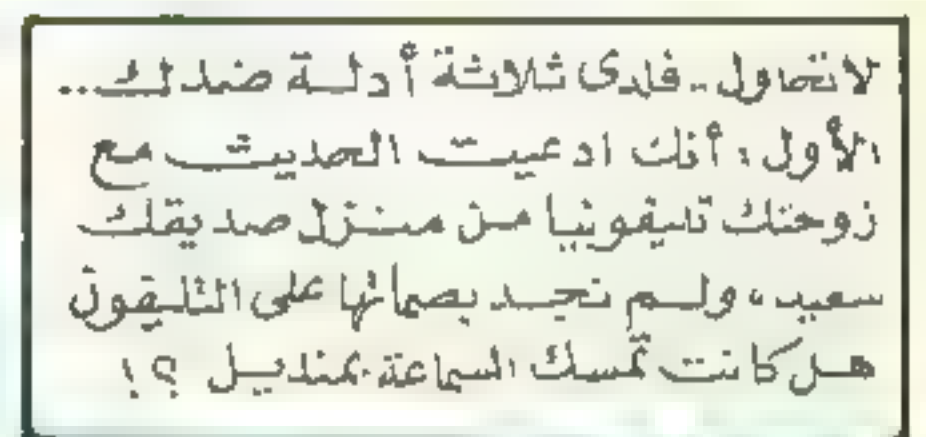 لا تحاول .. فلدى ثلاثة أدلة ضدك ..
الأول ، أنك ادعيت الحديث مع
زوجتك تليفونيا من منزل صديقك
سعيد ، ولم نجد بصماتها على التليفون
هل كانت تمسك السماعة بمنديل ؟!